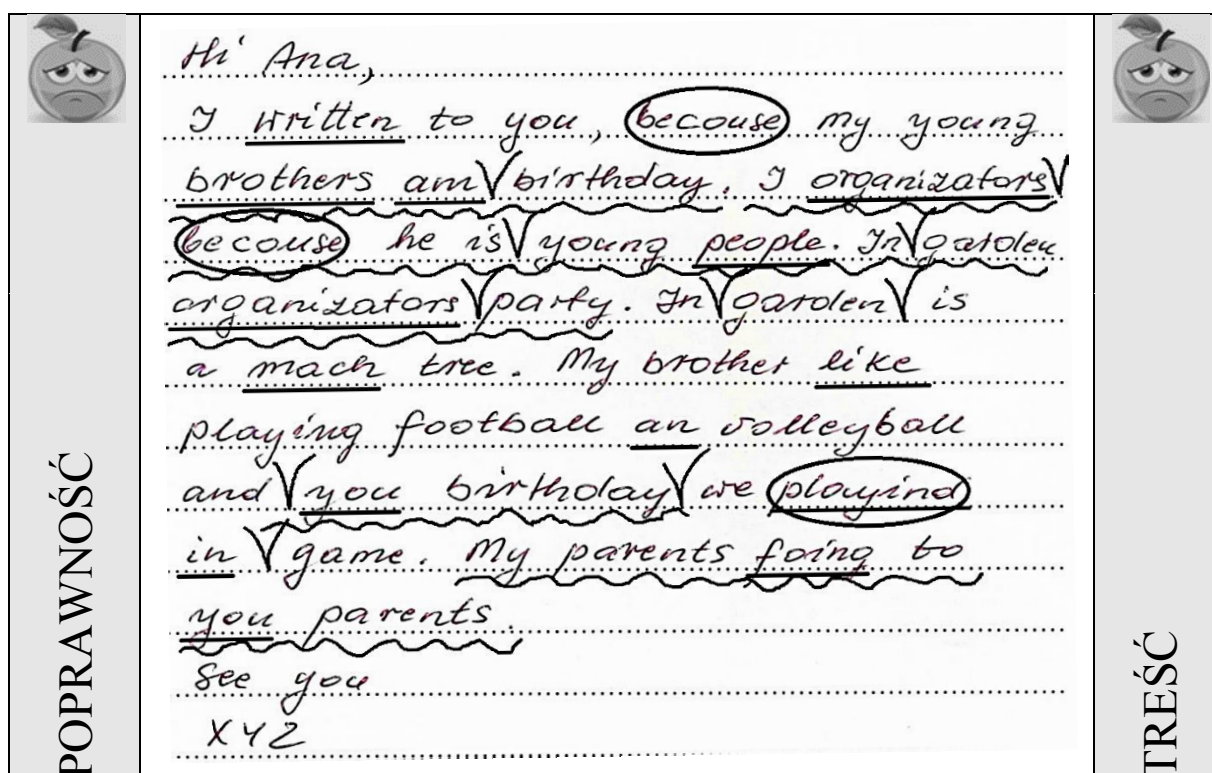 Hi Ana,
I written to you, becouse my young
brothers am birthday. I organizators
becouse he is young people. In garden
organizators party. In garden is
a mach tree. My brother like
playing football an volleyball
and you birthday we playind
in game. My parents foing to
you parents.
See you
XYZ
POPRAWNOŚĆ
TREŚĆ